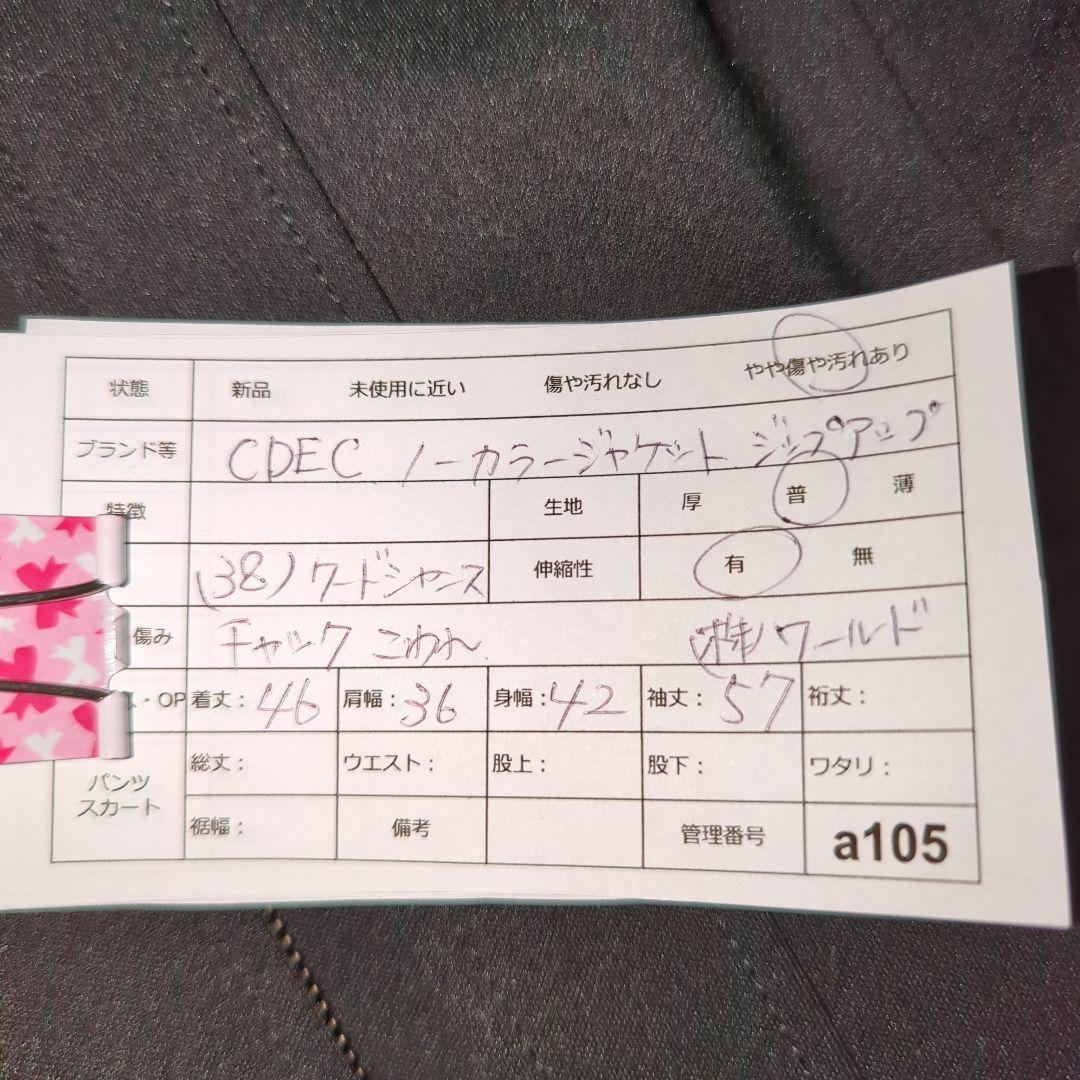 状態 新品 未使用に近い 傷や汚れなし やや傷や汚れあり
ブランド等 CDEC ノーカラージャケット ジップアップ
特徴 生地 厚 普 薄
(38) ワードシャンス 伸縮性 有 無
傷み チャック こわれ (株)ワールド
・OP 着丈：46 肩幅：36 身幅：42 袖丈：57 裄丈：
パンツ スカート
総丈： ウエスト： 股上： 股下： ワタリ：
裾幅： 備考 管理番号 a105